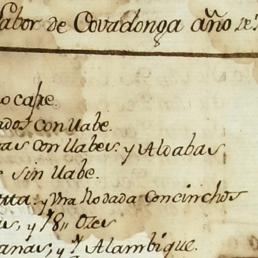 Labor de Covadonga año de
o cape
ados con llabe.
as con llabes. y Aldabas
sin llabe.
y una Rodada con cinchos
as, y 78,, Ozes
anas, y 7 Alambique.